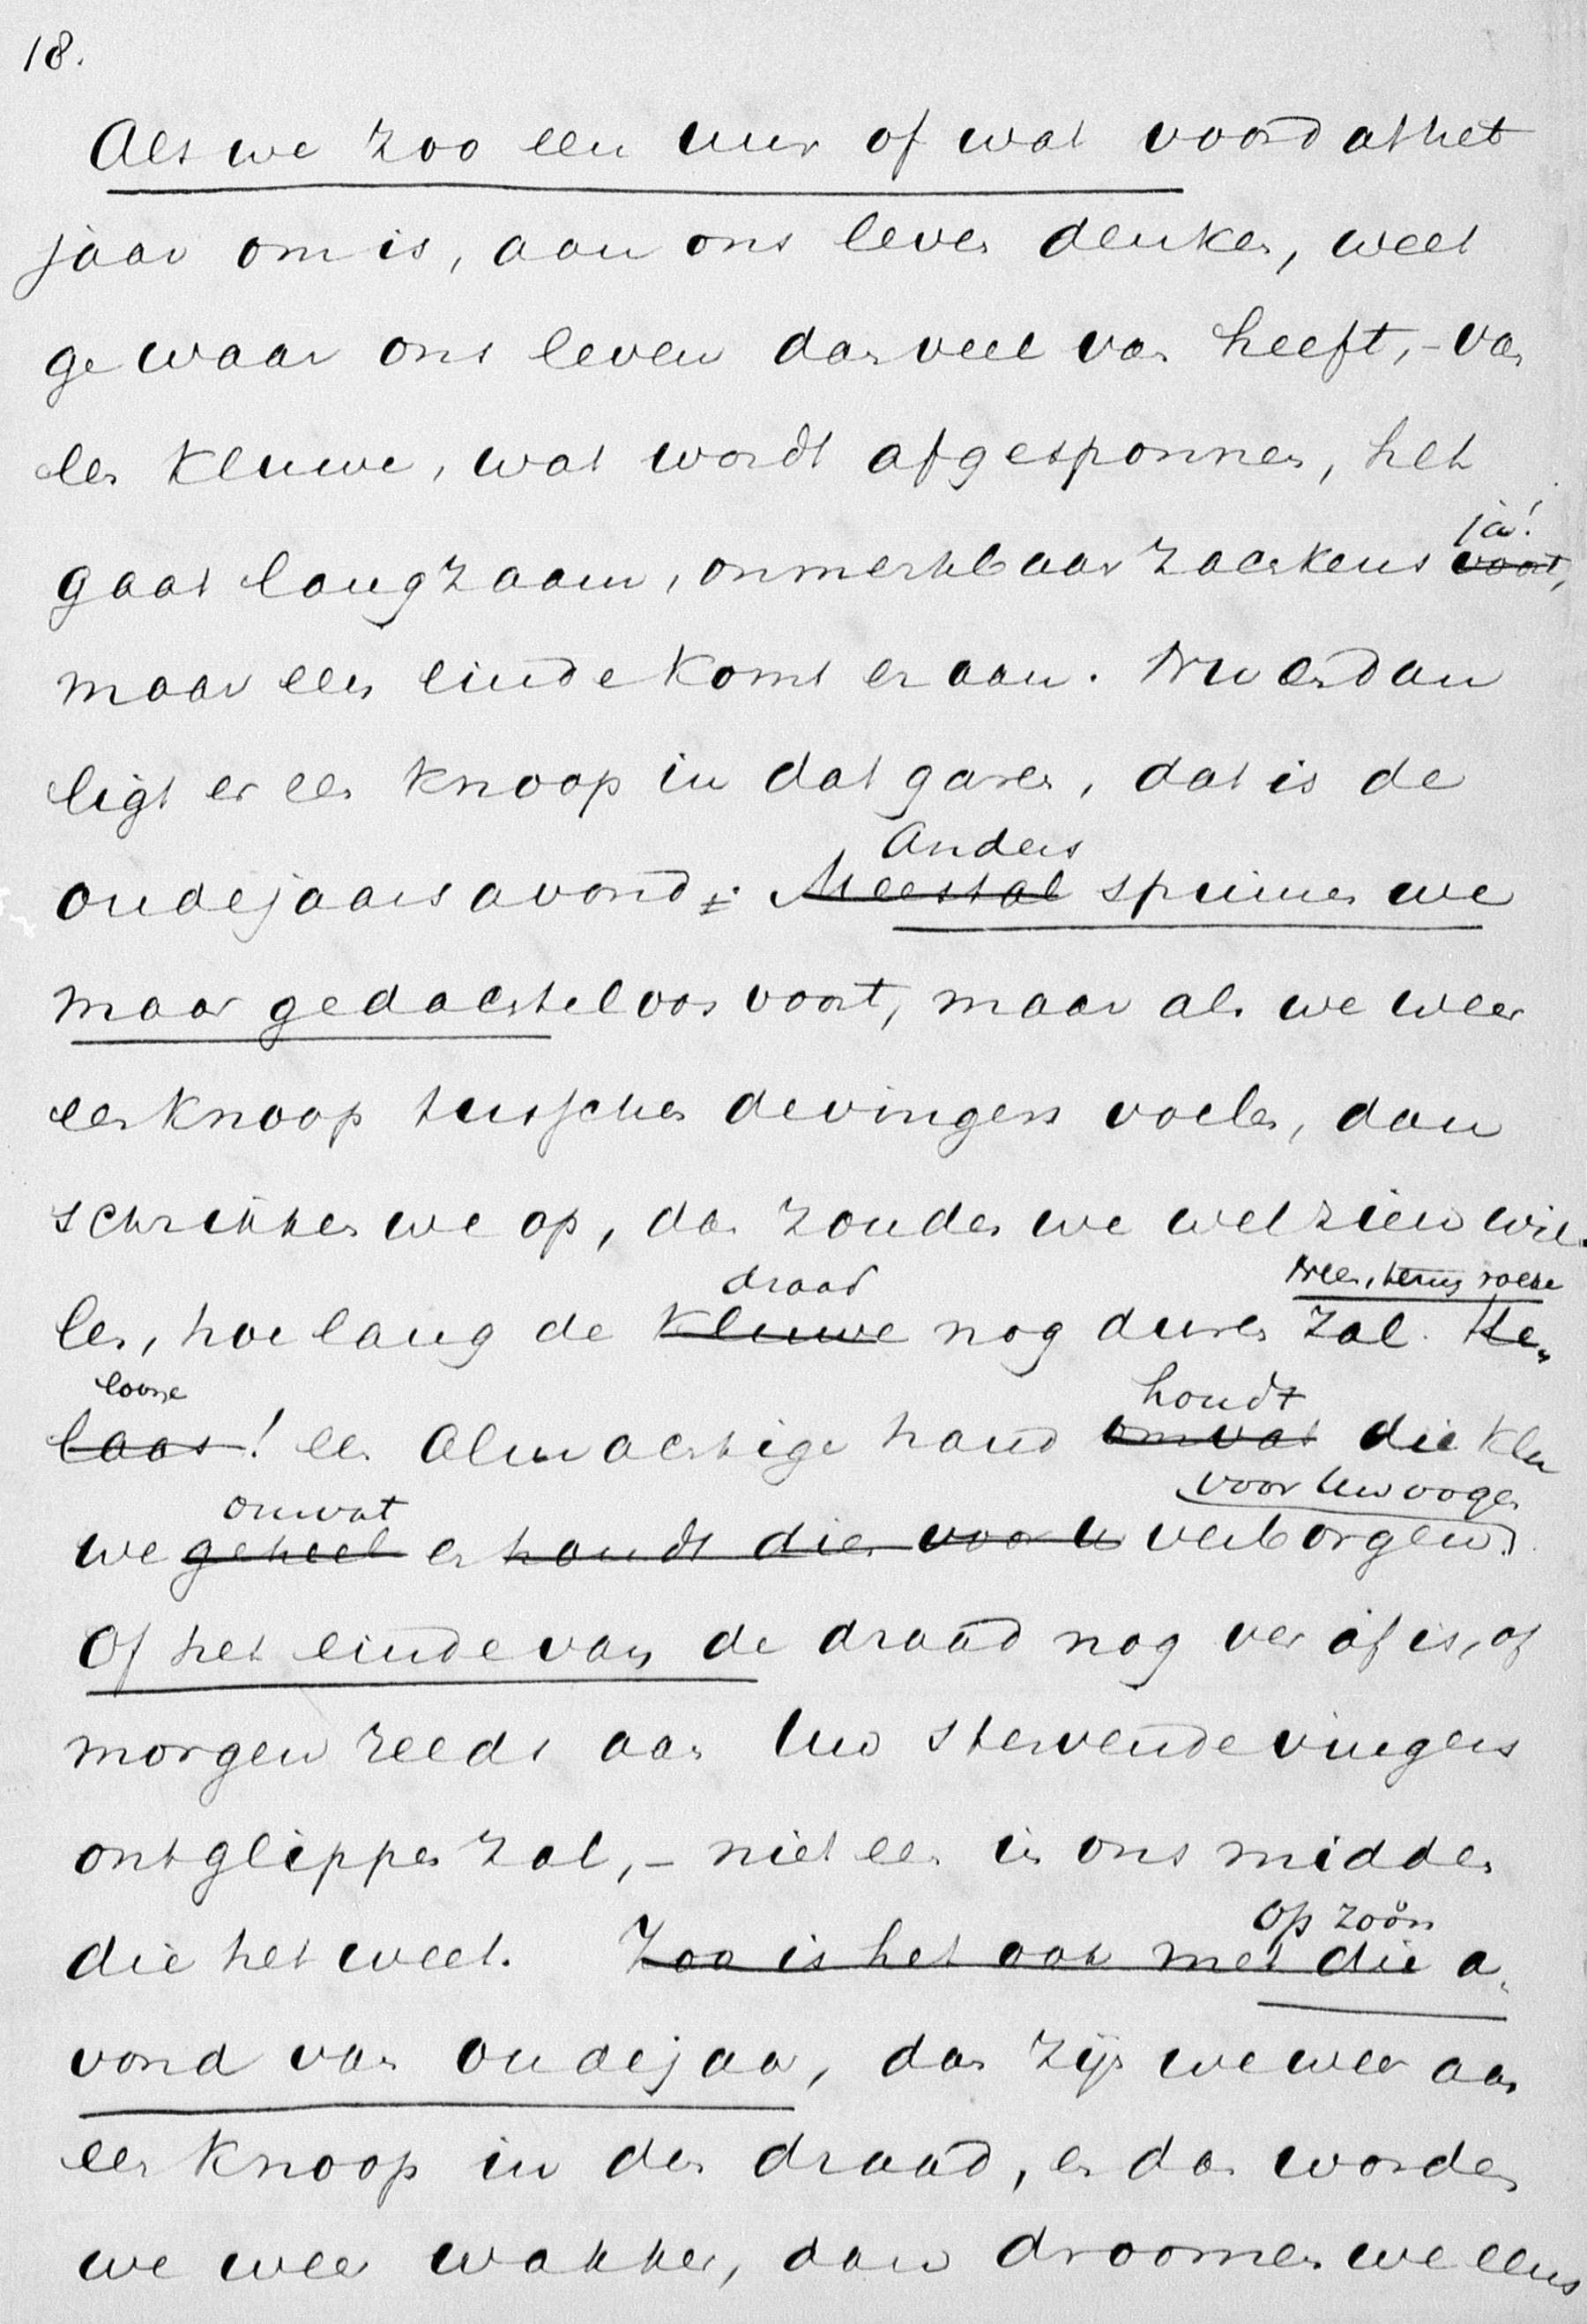 18.
Als we zoo een uur of wat voordat het
jaar om is, aan ons leven denken, weet
ge waar ons leven dan veel van heeft, - van
een kluwe, wat wordt afgesponnen, het
ja!
gaat langzaam, onmerkbaar zachtkens voort,
maar een einde komt er aan. Nu en dan
ligt er een knoop in dat garen, dat is de
Anders
oudejaarsavond. Meestal spinnen we
maar gedachteloos voort, maar als we weer
een knoop tusschen de vingers voelen, dan
schrikken we op, dan zouden we wel zien wil-
draad
len, hoe lang de kluwe nog duren zal. He-
houdt
laas! een Almachtige hand omvat die klu
omvat voor Uw oogen
we geheel en houdt dien voor U verborgen.
Of het einde van de draad nog ver af is, of
morgen reeds aan Uw stervende vingers
ontglippen zal, - niet een in ons midden
Op zoo'n
die het weet. Zoo is het ook met die a-
vond van oudejaar, dan zijn we weer aan
een knoop in den draad, en dan worden
we weer wakker, dan droomen we eens